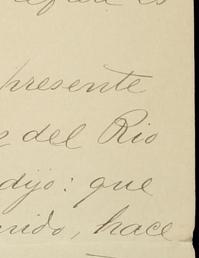 es
presente
del Rio
dijo: que
nido, hace